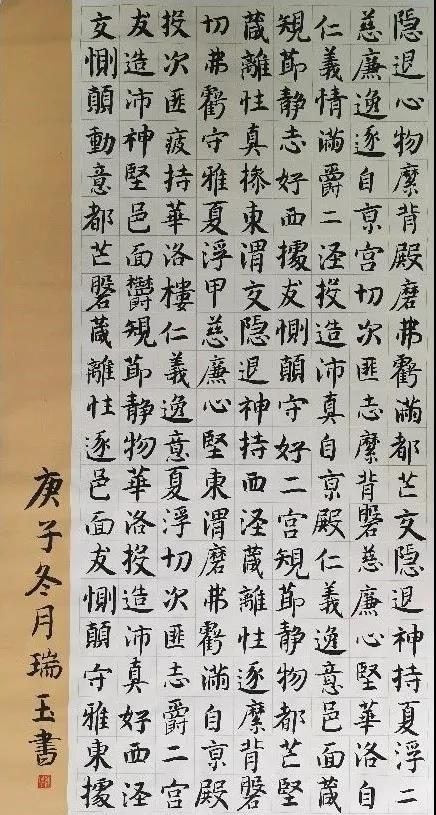 隱退心物縻背殿磨弗虧滿都芒交隱退神持夏浮二
慈廉逸逐自京宮切次匪志縻背磐慈廉心堅華洛自
仁義情滿爵二涇投造沛真自京殿仁義逸意邑面箴
規節靜志好西據友惻顛守好二宮規節靜物都芒堅
箴離性真操東渭交隱退神持西涇箴離性逐縻背磐
切弗虧守雅夏浮甲慈廉心堅東渭磨弗虧滿自京殿
投次匪疲持華洛樓仁義逸意夏浮切次匪志爵二宮
友造沛神堅邑面鬱規節靜物華洛投造沛真好西涇
交惻顛動意都芒磐箴離性逐邑面友惻顛守雅東據
庚子冬月瑞玉書